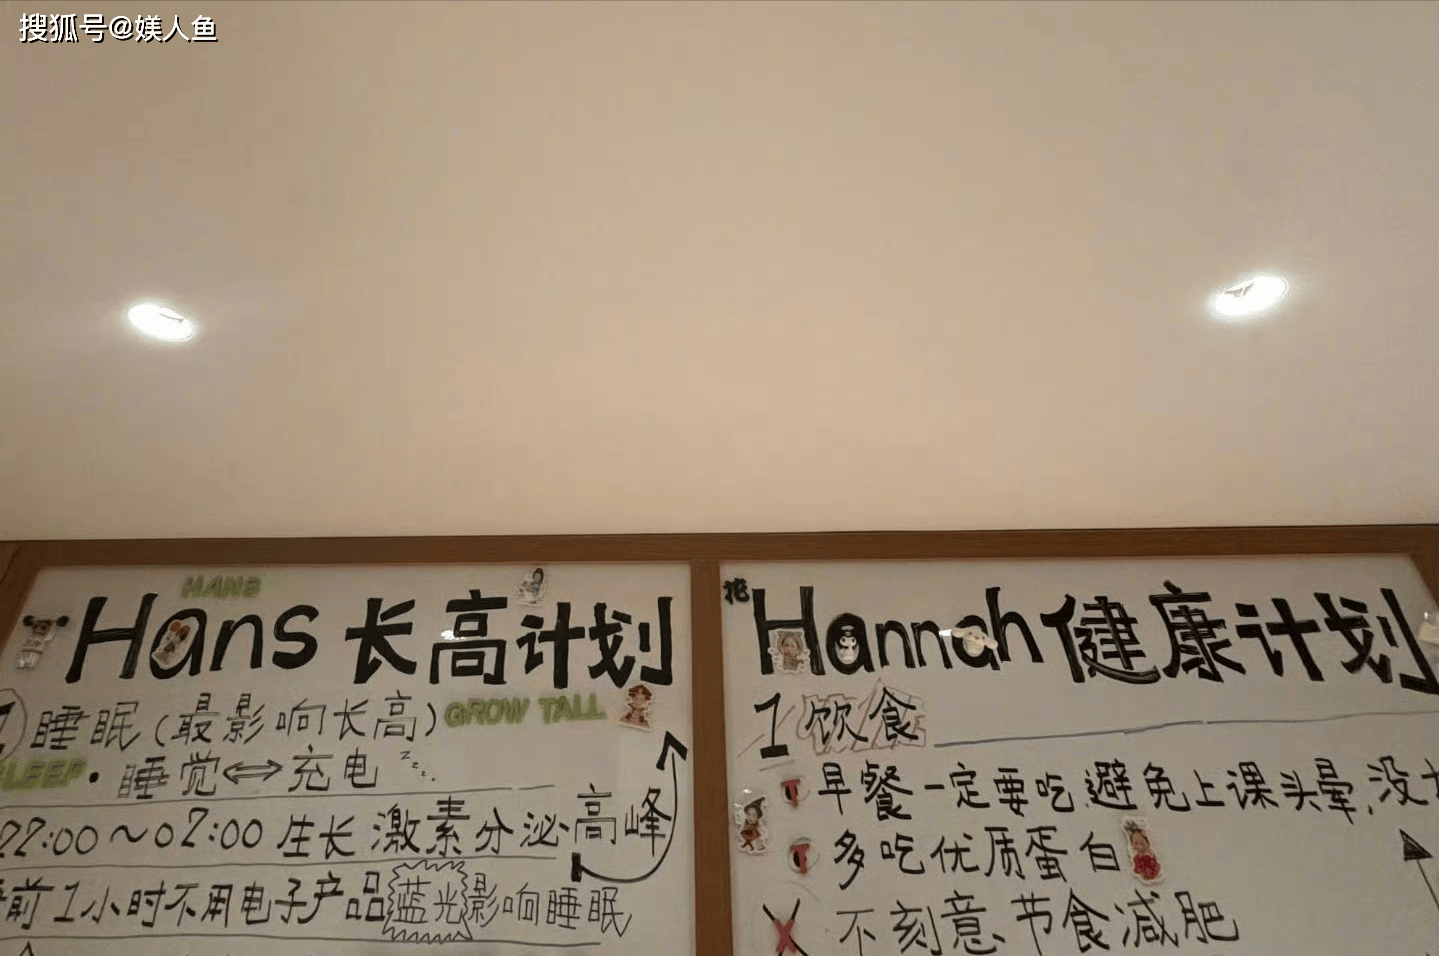 搜狐号@媄人鱼
HANS
Hans 长高计划
1 睡眠(最影响长高)
GROW TALL
SLEEP · 睡觉⇔充电 zzz..
22:00~02:00 生长激素分泌高峰
前1小时不用电子产品蓝光影响睡眠
花
Hannah 健康计划
1 饮食
早餐一定要吃,避免上课头晕,没
多吃优质蛋白
X 不刻意节食减肥